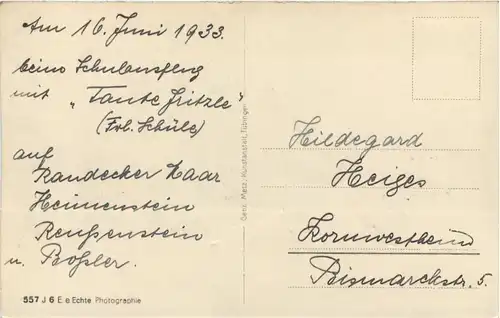 Am 16. Juni 1933.
beim Schulausflug
mit "Tante Fritzle"
(Frl. Schüle)
auf
Randecker Maar
Heimenstein
Reußenstein
u. Boßler.
557 J 6 E. e Echte Photographie
Gebr. Metz, Kunstanstalt, Tübingen
Hildegard
Heiges
Kornwestheim
Bismarckstr. 5.